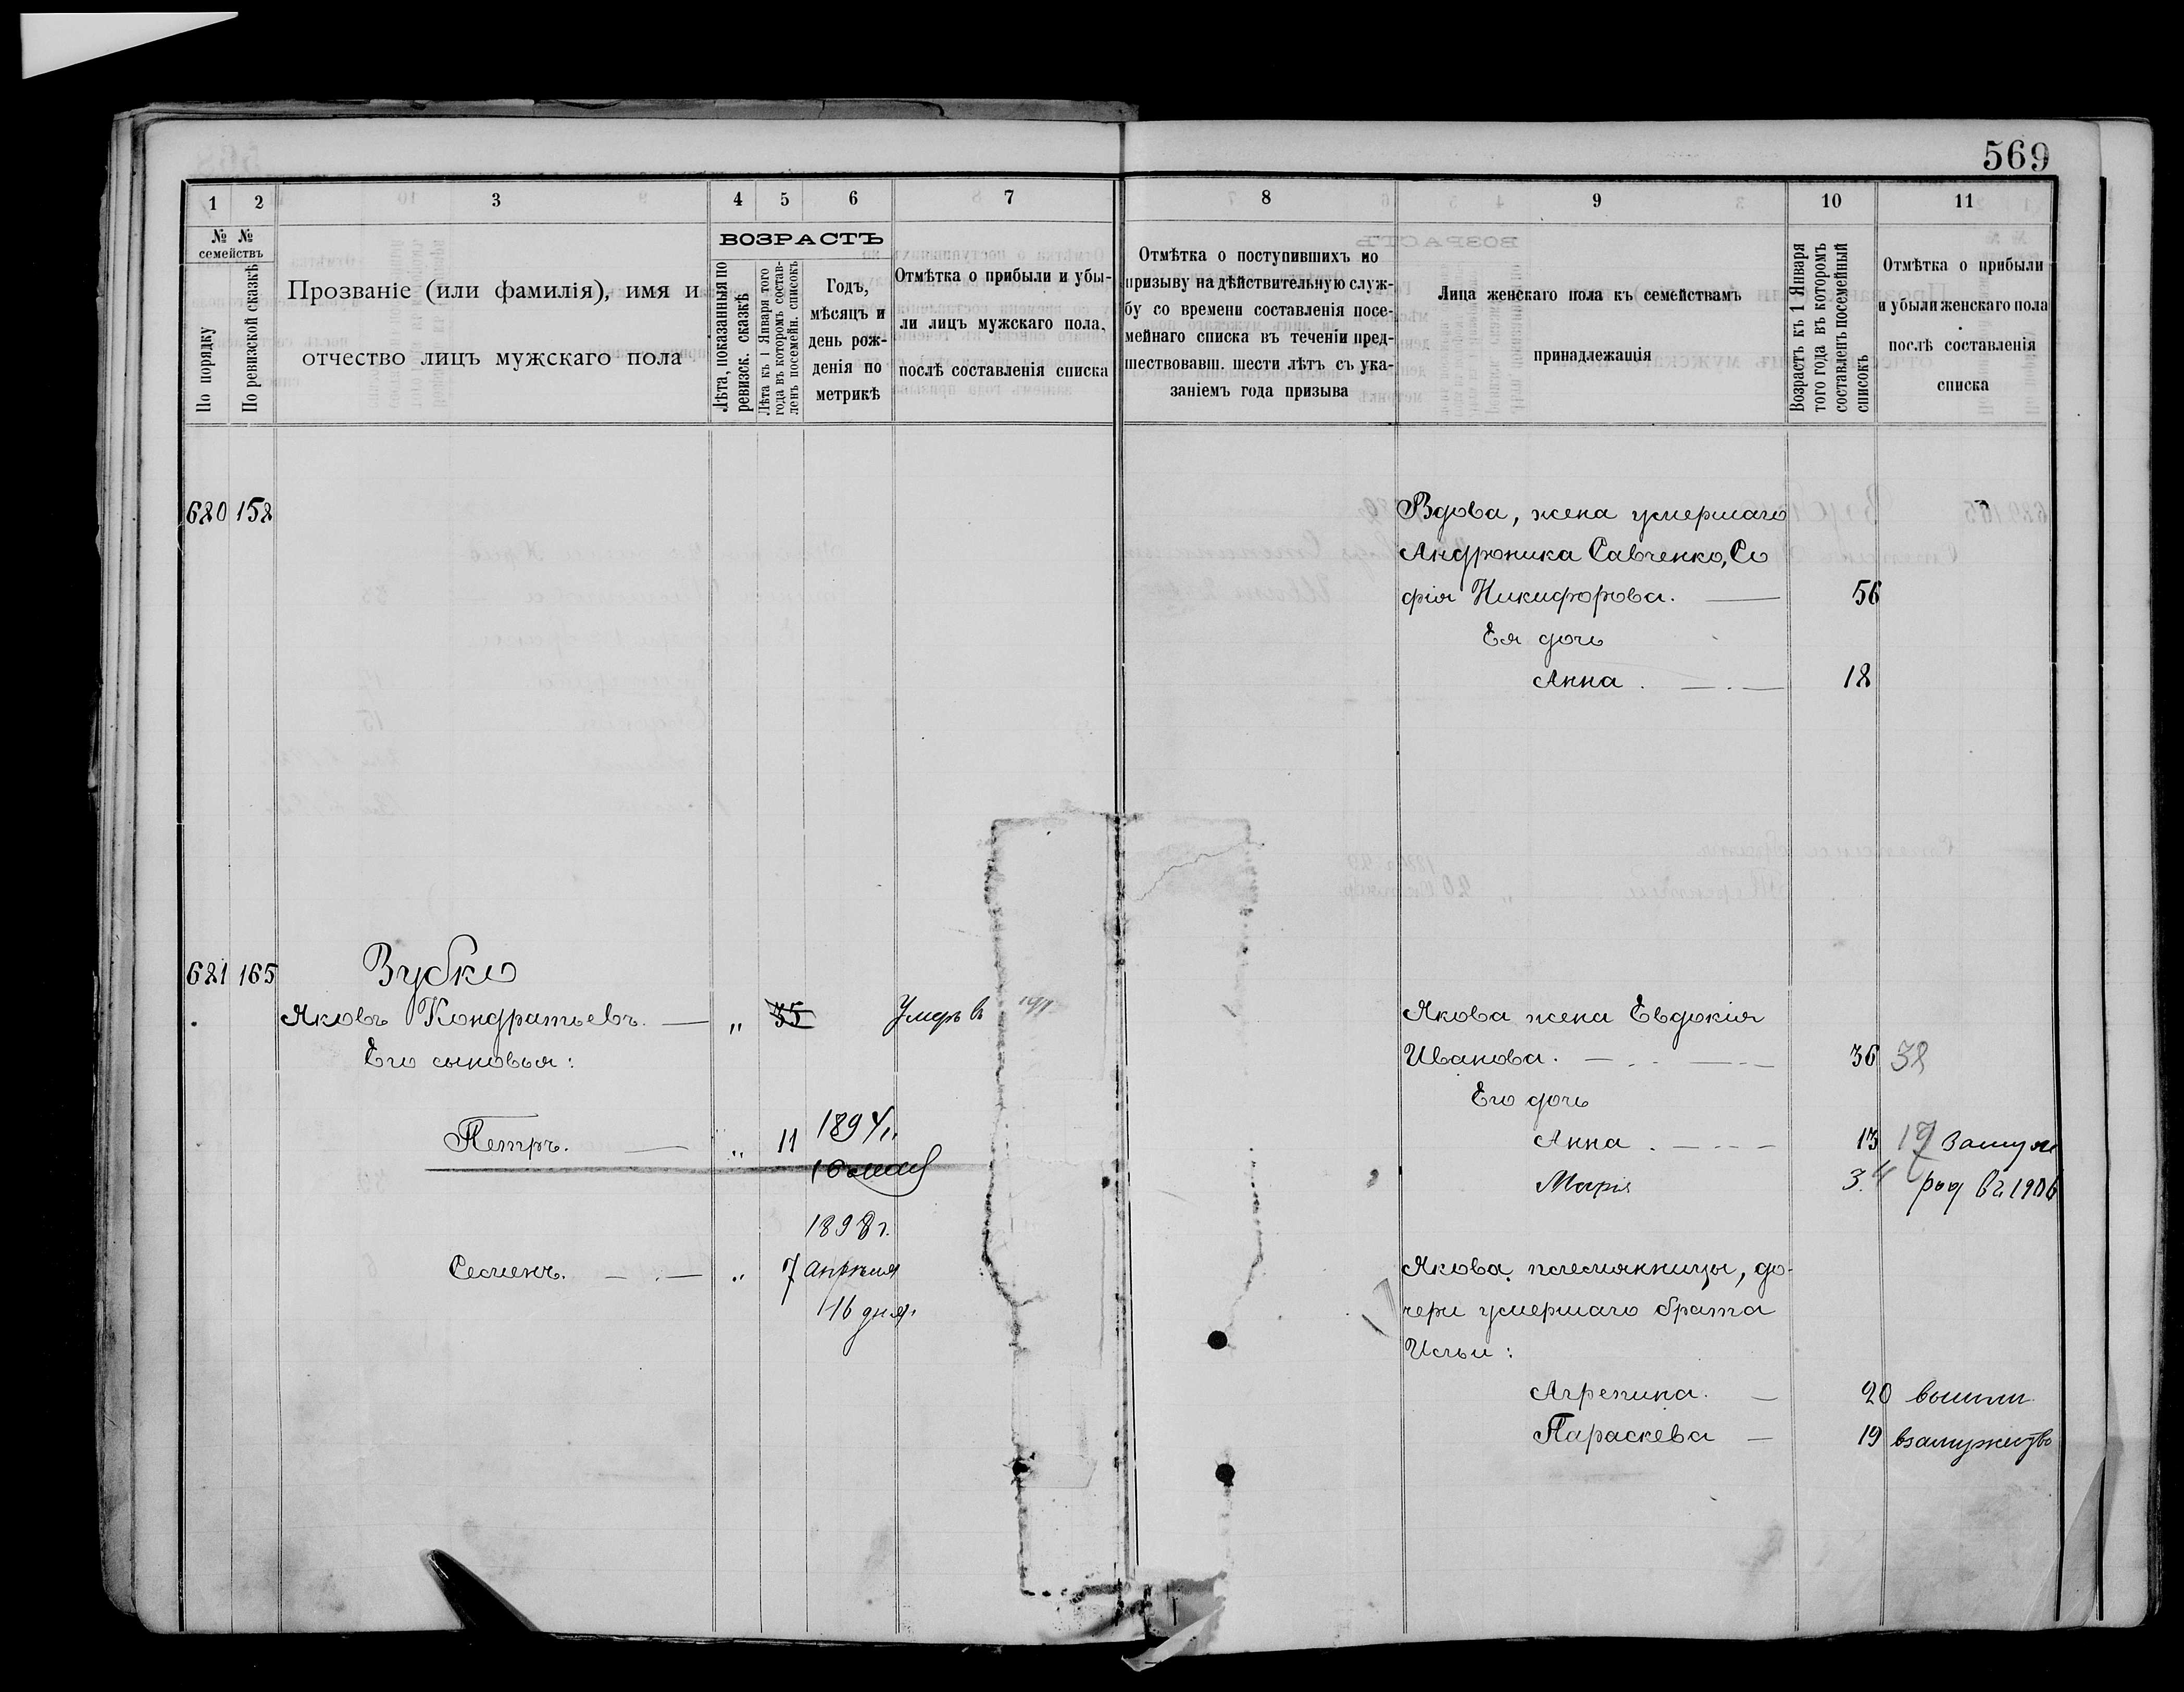 569
1 2 3 4 5 6 7 8 9 10 11
№ №
семействъ
По порядку
По ревизской сказкѣ
Прозваніе (или фамилія), имя и
отчество лицъ мужскаго пола
ВОЗРАСТЪ
Лѣта, показанныя по
ревизск. сказкѣ
Лѣта къ 1 Января того
года въ которомъ состав-
ленъ посемейн. списокъ
Годъ,
мѣсяцъ и
день рож-
денія по
метрикѣ
Отмѣтка о прибыли и убы-
ли лицъ мужскаго пола,
послѣ составленія списка
Отмѣтка о поступившихъ по
призыву на дѣйствительную служ-
бу со времени составленія посе-
мейнаго списка въ теченіи пред-
шествовавш. шести лѣтъ съ ука-
заніемъ года призыва
Лица женскаго пола къ семействамъ
принадлежащія
Возрастъ къ 1 Января
того года въ которомъ
составленъ посемейный
списокъ
Отмѣтка о прибыли
и убыли женскаго пола
послѣ составленія
списка
680 158 Вдова, жена умершаго
Андроника Савченко, Со
фія Никифорова. — 56
Ея дочь
Анна. — 18
681 165 Зубко
Яковъ Кондратьевъ. — „ 35 Умеръ в
Его сыновья:
Петръ. — „ 11 1894 г.
16
Семенъ. — „ 7 1898 г.
апрѣля
16 дня.
Якова жена Евдокія
Иванова. — 36 38
Его дочь
Анна. — 13 замуж
Марія 3 род въ 1906
Якова племянницы, до-
чери умершаго брата
Ильи:
Агрепина. — 20 вышли
Параскева — 19 взамужество